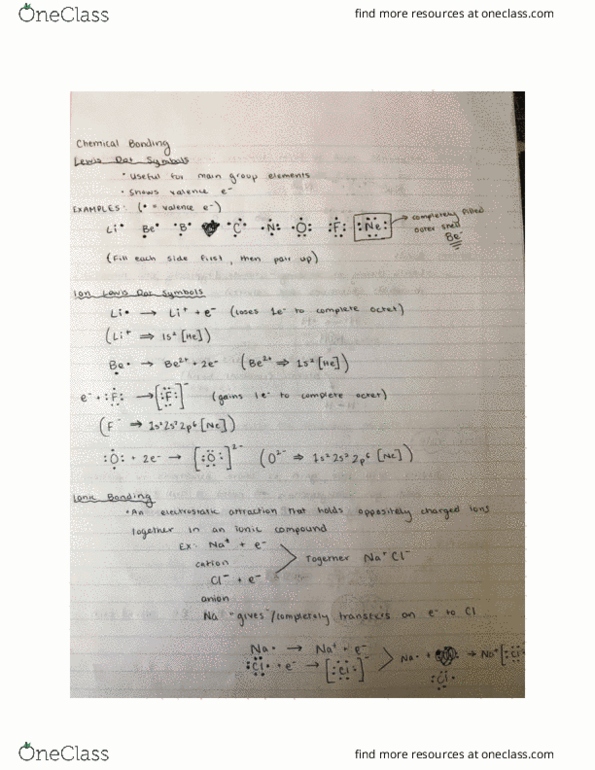 OneClass
find more resources at oneclass.com
Chemical Bonding
Lewis Dot Symbols
• Useful for main group elements
• Shows valence e⁻
EXAMPLES: (• = valence e⁻)
Li• Be• •B• •C• •N• •O• :F: :Ne: → completely filled
outer shell
Be⁻
(Fill each side first, then pair up)
Ion Lewis Dot Symbols
Li• → Li⁺ + e⁻ (loses 1e⁻ to complete octet)
(Li⁺ ⇒ 1s² [He])
Be• → Be²⁺ + 2e⁻ (Be²⁺ ⇒ 1s² [He])
e⁻ + :F: → [:F:]⁻ (gains 1e⁻ to complete octet)
(F⁻ ⇒ 1s²2s²2p⁶ [Ne])
:O: + 2e⁻ → [:O:]²⁻ (O²⁻ ⇒ 1s²2s²2p⁶ [Ne])
Ionic Bonding
• An electrostatic attraction that holds oppositely charged ions
together in an ionic compound
Ex: Na⁺ + e⁻
cation
Together Na⁺Cl⁻
Cl⁻ + e⁻
anion
Na "gives"/completely transfers an e⁻ to Cl
Na• → Na⁺ + e⁻
:Cl• + e⁻ → [:Cl:]⁻
Na• + :Cl• → Na⁺[:Cl:
OneClass
find more resources at oneclass.com